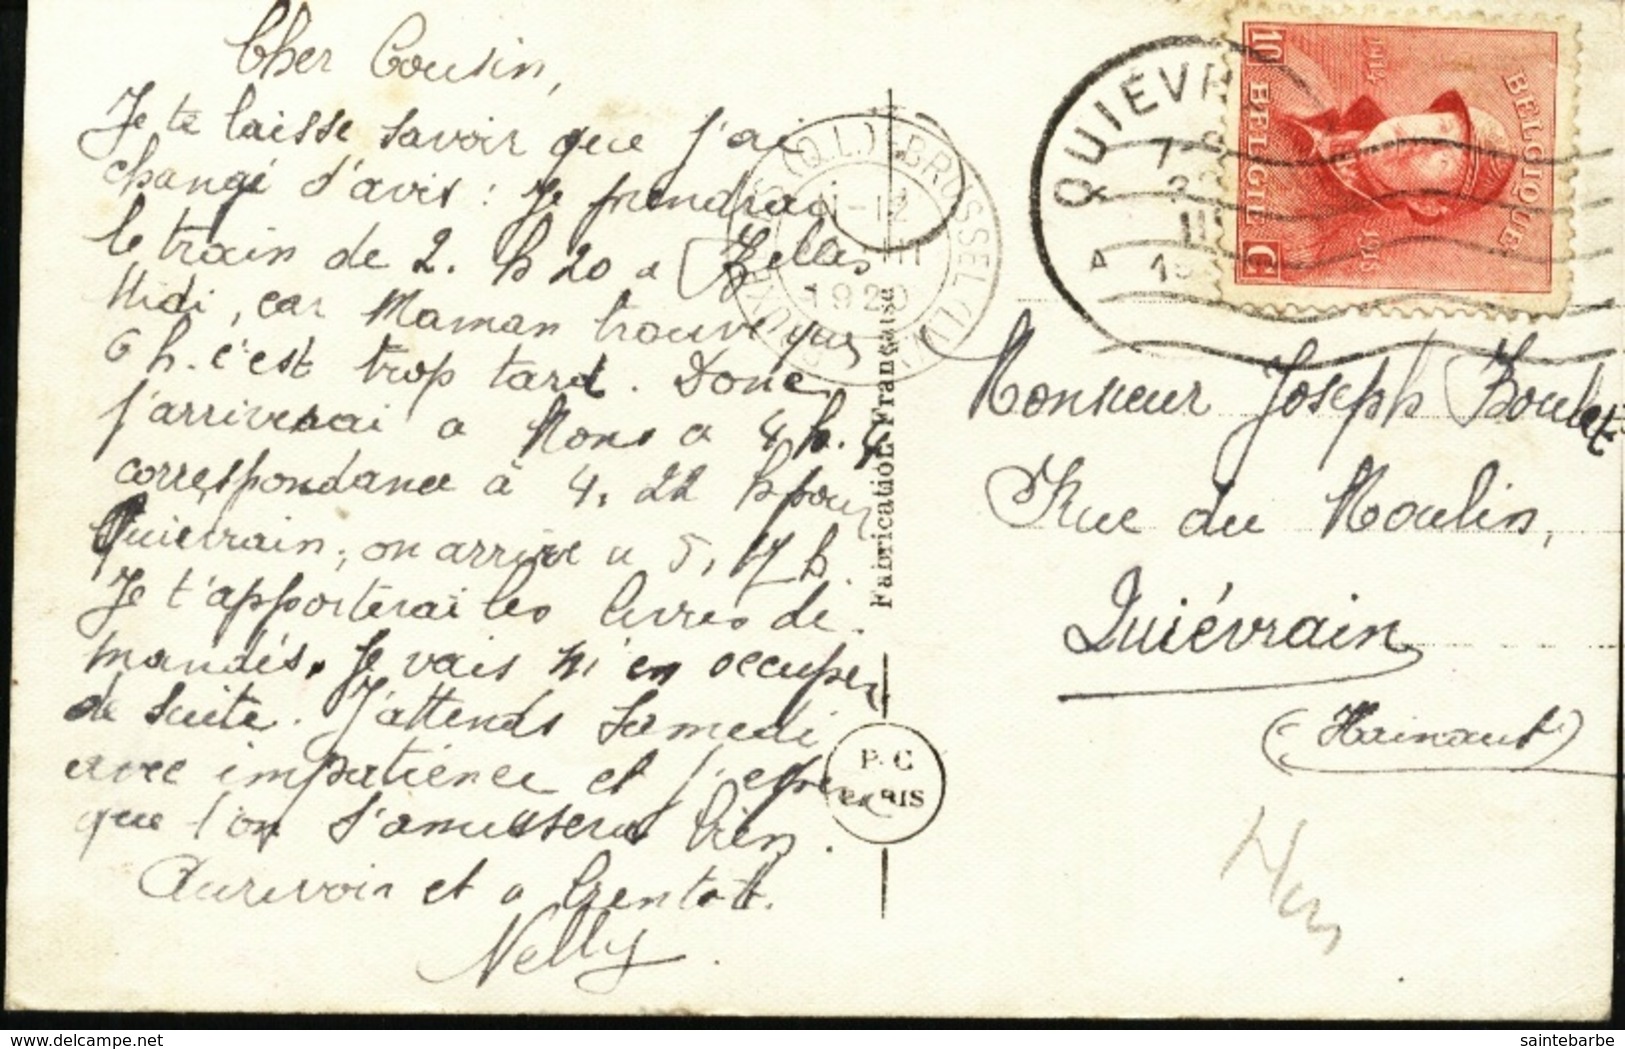 Cher Cousin,
Je te laisse savoir que j'ai
changé d'avis : Je prendrai
le train de 2. h 20 a Xelles
Midi, car Maman trouve que
6 h. c'est trop tard. Donc
j'arriverai a Mons a 4 h. 4
correspondance à 4, 22 h pour
Quievrain, on arrive a 5, 17 h.
Je t'apporterai les livres de-
mandés. Je vais m'en occuper
de suite. J'attends Samedi
avec impatience et j'espère
que l'on s'amussera bien.
Aurevoir et a bientott.
Nelly.
Fabrication Française
P.C
PARIS
BRUXELLES (Q.L.) BRUSSEL (L.W.)
11-12
III
1920
QUIÉVR
A
III
BELGIQUE
BELGIE
1914
1918
10 C
Monsieur Joseph Boulet
Rue du Moulin,
Quiévrain
(Hainaut)
delcampe.net
saintebarbe